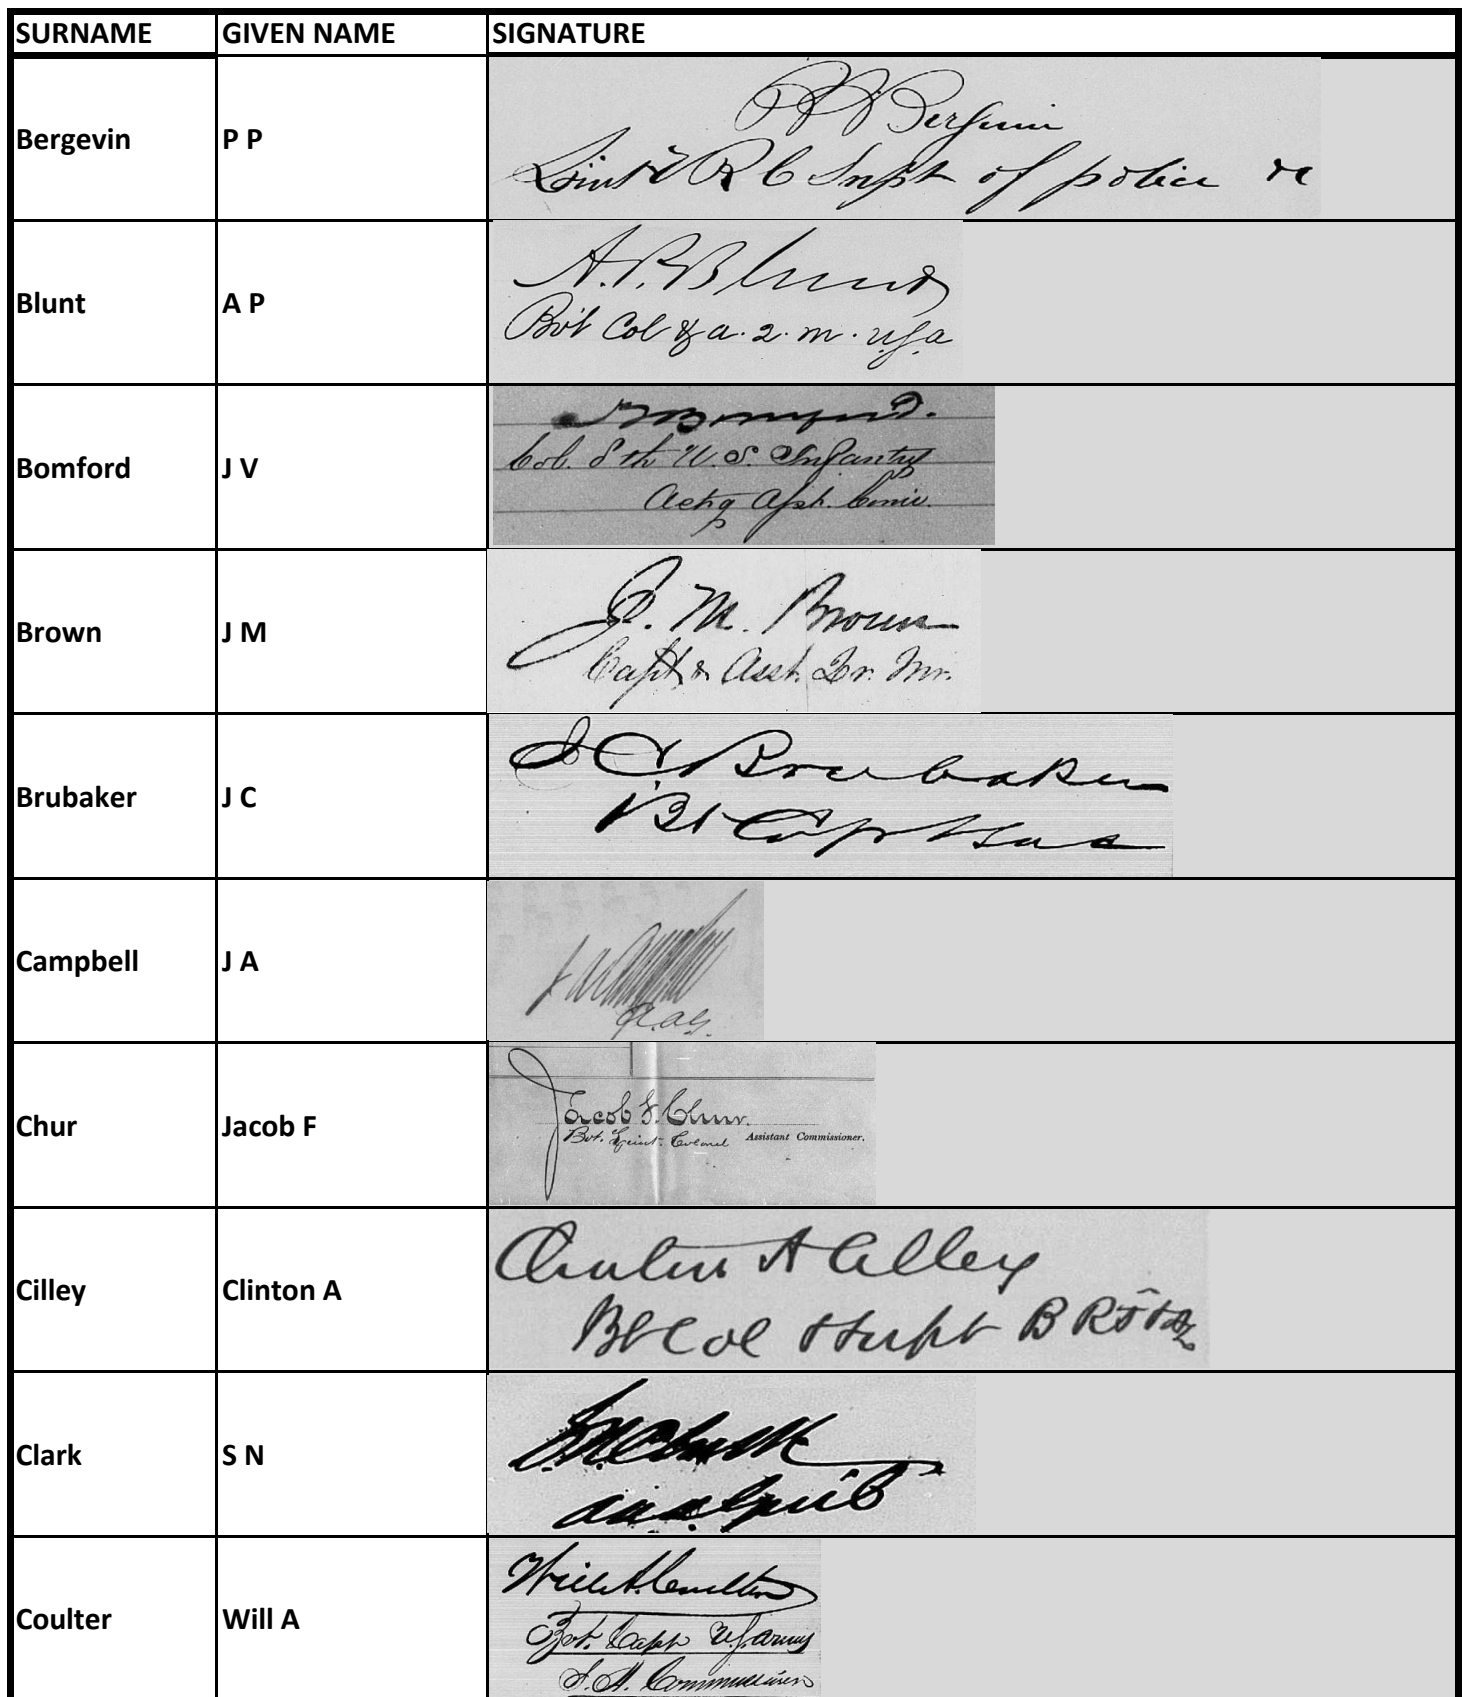 SURNAME GIVEN NAME SIGNATURE
Bergevin P P P P Bergevin
Lieut V R C Supt of police &c
Blunt A P A. P. Blunt
Bvt Col & a. q. m. usa
Bomford J V JVBomford.
Col. 8th U.S. Infantry
Actg Asst. Comr.
Brown J M J. M. Brown
Capt & Asst. Qr. Mr.
Brubaker J C J C Brubaker
Bt Capt
Campbell J A J A Campbell
A.A.G.
Chur Jacob F Jacob F. Chur.
Bvt. Lieut. Colonel Assistant Commissioner.
Cilley Clinton A Clinton A Cilley
Bt Col & Supt B R F &
Clark S N S. N. Clark
Coulter Will A Will A. Coulter
Bvt. Capt U.S. Army
Commissioner